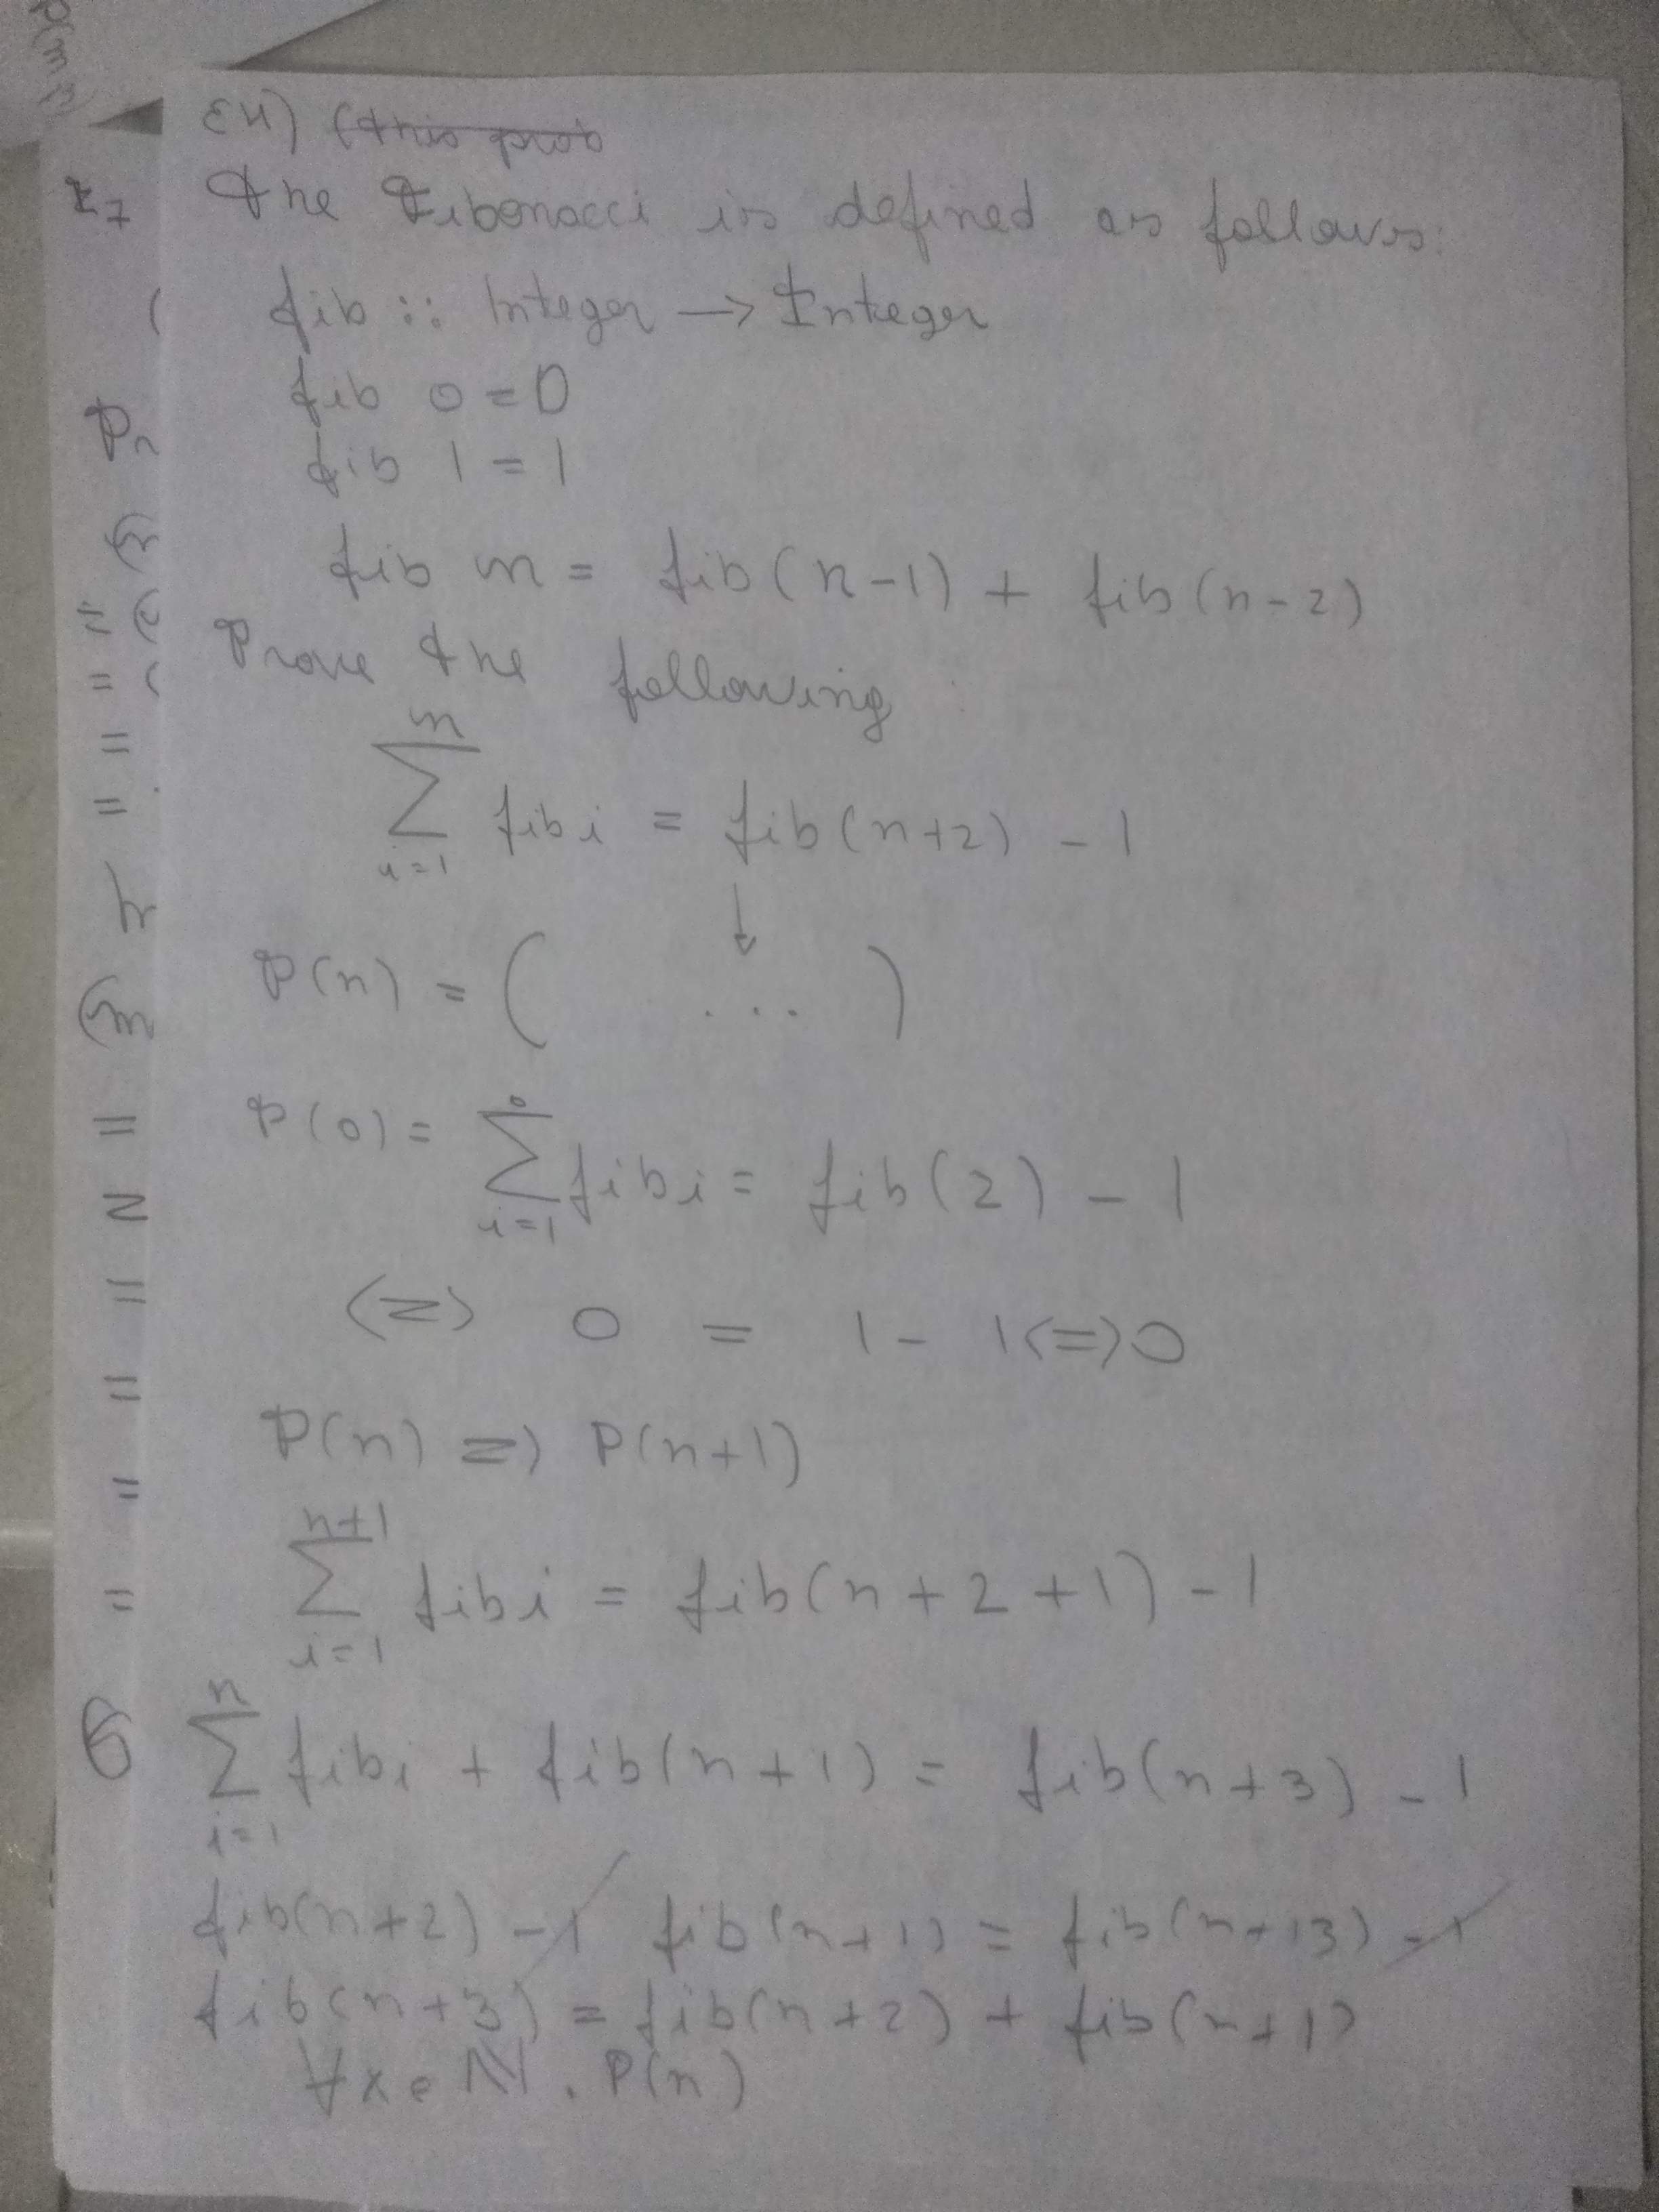 E4) (this prob
The Fibonacci is defined as follows:
fib :: Integer → Integer
fib 0 = 0
fib 1 = 1
fib n = fib(n-1) + fib(n-2)
Prove the following
n
∑ fib i = fib(n+2) - 1
i=1
↓
P(n) = ( ... )
P(0) = 0
∑ fib i = fib(2) - 1
i=1
<=> 0 = 1 - 1 <=> 0
P(n) => P(n+1)
n+1
∑ fib i = fib(n+2+1) - 1
i=1
n
∑ fib i + fib(n+1) = fib(n+3) - 1
i=1
fib(n+2) - 1 fib(n+1) = fib(n+13) - 1
fib(n+3) = fib(n+2) + fib(n+1)
∀x∈ℕ. P(n)